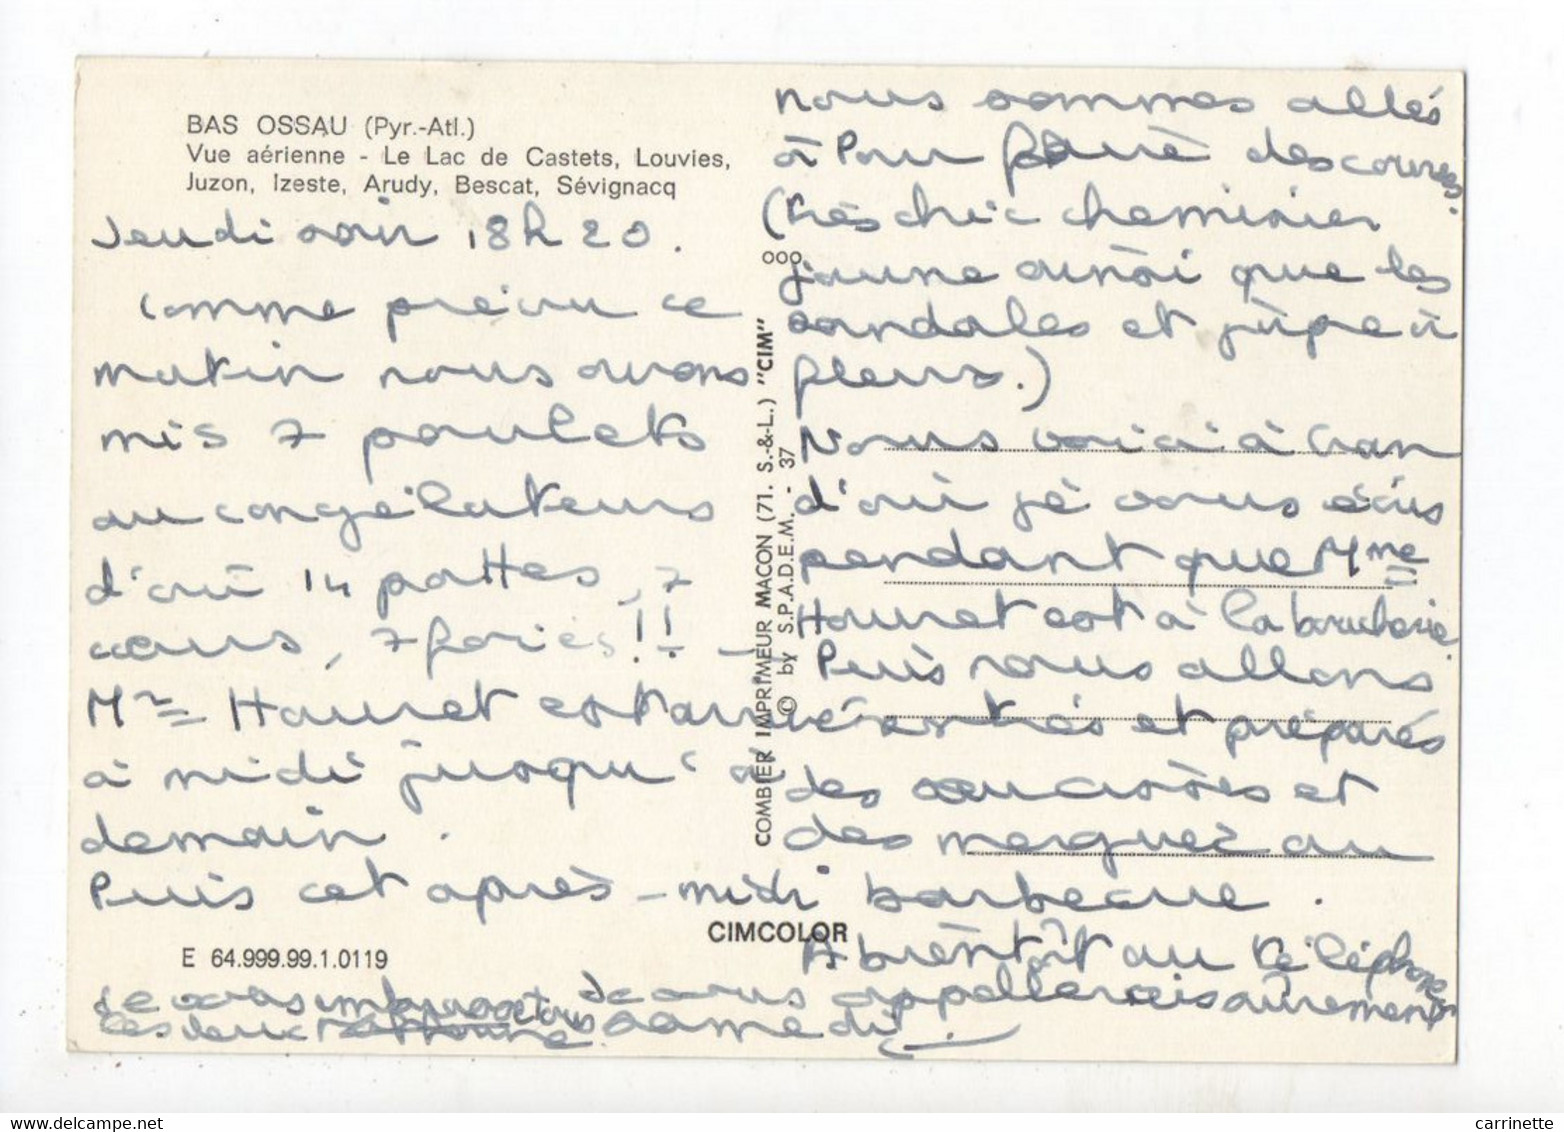 BAS OSSAU (Pyr.-Atl.)
Vue aérienne - Le Lac de Castets, Louvies,
Juzon, Izeste, Arudy, Bescat, Sévignacq
Jeudi soir 18h20.
Comme prévu ce
matin nous avons
mis 7 poulets
au congélateurs
d'où 14 pattes, 7
cœurs, 7 foies!!
Mme Hounet est arrivé
à midi jusqu'à
demain.
Puis cet après-midi
E 64.999.99.1.0119
CIMCOLOR
COMBIER IMPRIMEUR MACON (71. S.-&-L.) "CIM"
© by S.P.A.D.E.M. - 37
nous sommes allés
à Pau faire des courses.
(très chic chemisier
jaune ainsi que les
sandales et jupe à
fleurs.)
Nous voici à Gan
d'où je vous écris
pendant que Mme
Hounet est à la boucherie.
Puis nous allons
rentrés et préparés
des saucisses et
des merguez au
barbecue.
A bientôt au téléphone
Je vous appellerais sûrement
samedi.
Je vous embrasse tous
les deux
carrinette